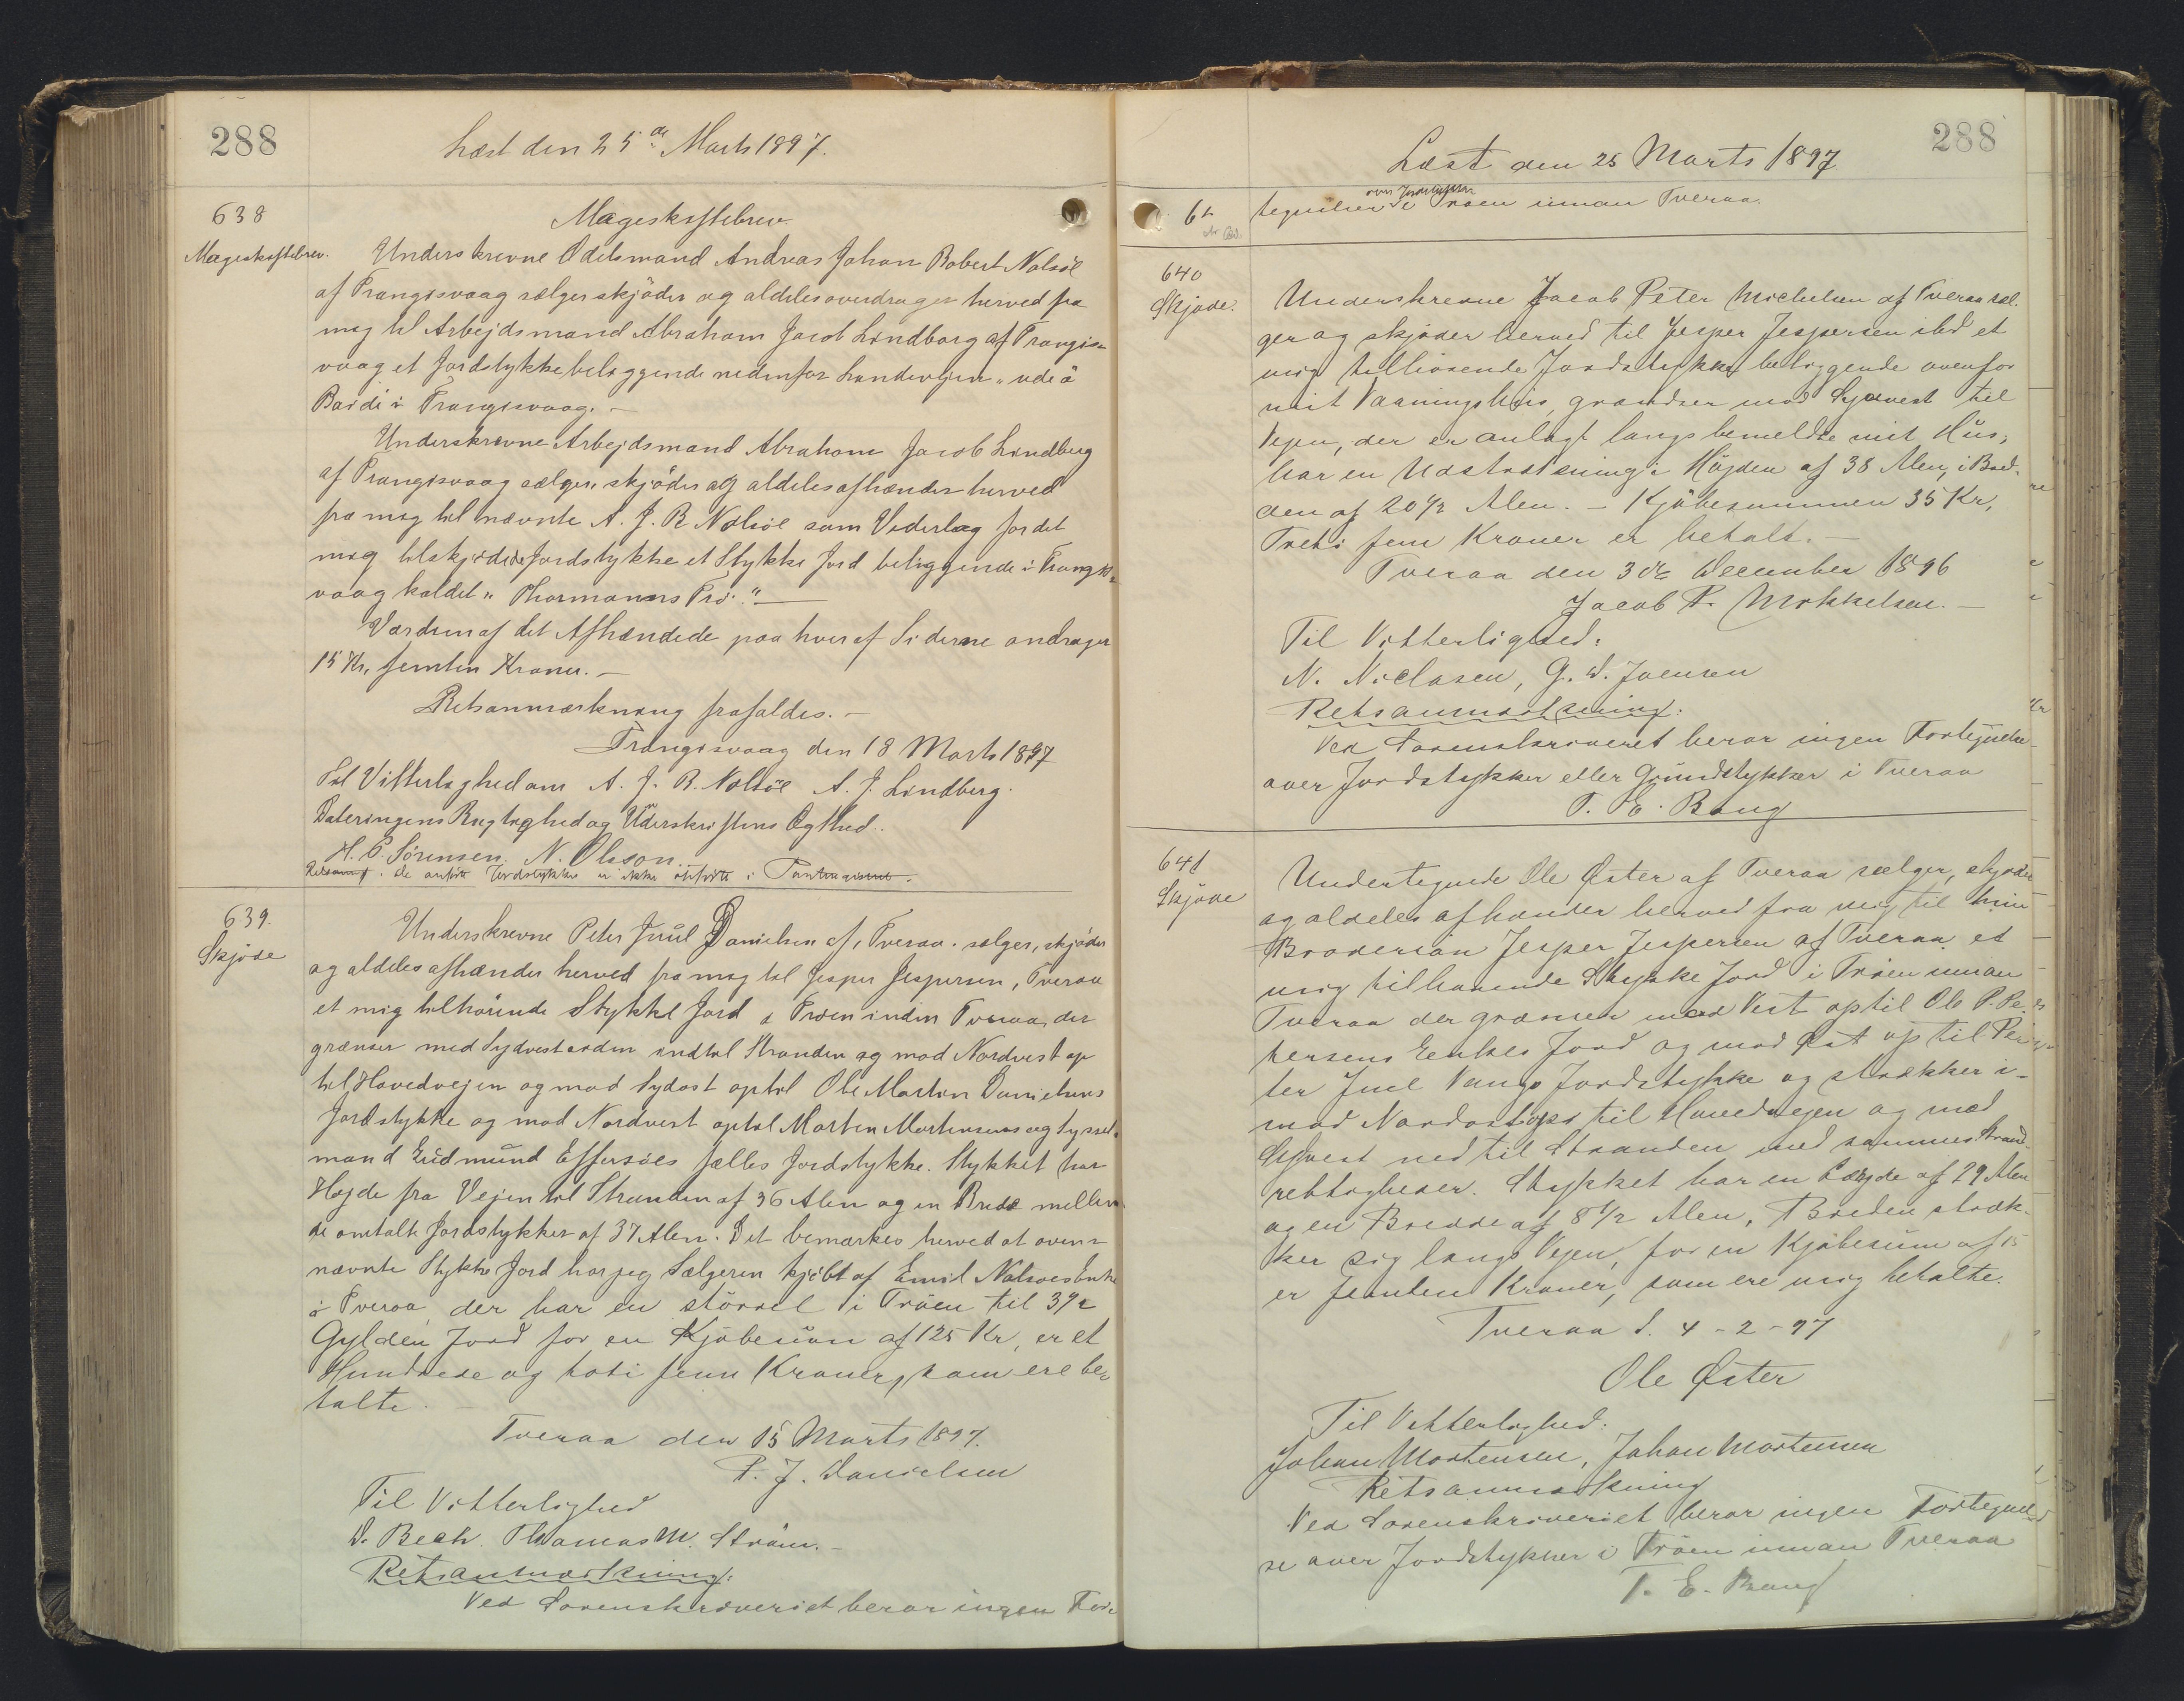 288
Læst den 25de Marts 1897.
638
Mageskiftebrev.
Mageskiftebrev.
Underskrevne Odelsmand Andreas Johan Robert Nolsöe
af Trangisvaag sælger skjöder og aldeles overdrager herved fra
mig til Arbejdsmand Abraham Jacob Lindberg af Trangis-
vaag et Jordstykke beliggende nedenfor Landevejen "ude á
Bardi i Trangisvaag. —
Underskrevne Arbejdsmand Abraham Jacob Lindberg
af Trangisvaag sælger, skjöder og aldeles afhænder herved
fra mig til nævnte A. J. R Nolsöe som Vederlag for det
mig tilskjödede Jordstykke et Stykke Jord beliggende i Trangis-
vaag kaldet "Thormanns Trö." —
Værdien af det Afhændede paa hver af Siderne andrager
15 Kr, femten Kroner. —
Retsanmærkning frafaldes. —
Trangisvaag den 18 Marts 1897
Til Vitterlighed om A. J. R. Nolsöe A. J. Lindberg.
Dateringens Rigtighed og Underskriftens Ægthed.
H. P. Sörensen. N. Olsson.
Retsanm. de anförte Jordstykker er ikke opförte i Panteregistret.
639.
Skjöde
Underskrevne Peter Juul Danielsen af Tveraa sælger, skjöder
og aldeles afhænder herved fra mig til Jesper Jespersen, Tveraa
et mig tilhörende Stykke Jord i Tröen inden Tveraa, der
grænser med Sydvestenden indtil Stranden og mod Nordvest op
til Hovedvejen og mod Sydost optil Ole Martin Danielsens
Jordstykke og mod Nordvest optil Morten Mortensens og Syssel-
mand Gudmund Effersöes fælles Jordstykke. Stykket har
Højde fra Vejen til Stranden af 36 Alen og en Bredde mellem
de omtalte Jordstykker af 37 Alen. Det bemærkes herved at oven-
nævnte Stykke Jord har jeg Sælgeren kjöbt af Emil Nolsöes Enke
i Tveraa, der har en störrel i Tröen til 3 1/2
Gylden Jord for en Kjöbesum af 125 Kr, er et
Hundrede og toti fem Kroner, som ere be-
talte. —
Tveraa den 15 Marts 1897.
P. J. Danielsen
Til Vitterlighed
D. Bech. Thomas M. Ström. —
Retsanmærkning:
Ved Sorenskriveriet beror ingen For-
288
Læst den 25 Marts 1897
over Jordstykker
tegnelser i Tröen innan Tveraa.
640
Skjöde.
Underskrevne Jacob Peter Michelsen af Tveraa sæl-
ger og skjöder herved til Jesper Jespersen ibd et
mig tilhörende Jordstykke beliggende ovenfor
mit Vaaningshus, grændser mod Sydvest til
Vejen, der er anlagt langs bemeldte mit Hus,
har en Udstrækning i Höjden af 38 Alen, i Bred-
den af 20 1/2 Alen. — Kjöbesummen 35 Kr,
Treti fem Kroner er betalt. —
Tveraa den 3die December 1896
Jacob P. Mikkelsen. —
Til Vitterlighed:
N. Niclasen, G. D. Joensen
Retsanmærkning:
Ved Sorenskriveriet beror ingen Fortegnelse
over Jordstykker eller Grundstykker i Tveraa
T. E. Bang
641
Skjöde
Undertegnede Ole Öster af Tveraa sælger, skjöder
og aldeles afhænder herved fra mig til min
Brodersön Jesper Jespersen af Tveraa et
mig tilhörende Stykke Jord i Tröen innan
Tveraa der grænser mod Vest optil Ole P. Pe-
tersens Enkes Jord og mod Öst op til Pe-
ter Juul Vangs Jordstykke og strækker i-
mod Nordost op til Hovedvejen og mod
Sydvest ned til Stranden med sammes Strand-
rettigheder. Stykket har en Længde af 29 Alen
og en Bredde af 8 1/2 Alen, Breden stræk-
ker sig langs Vejen, for en Kjöbesum af 15
er femten Kroner, som ere mig betalte.
Tveraa d. 4-2-97
Ole Öster
Til Vitterlighed:
Johan Mortensen, Johan Mortensen
Retsanmærkning
Ved Sorenskriveriet beror ingen Fortegnel-
se over Jordstykker i Tröen innan Tveraa
T. E. Bang